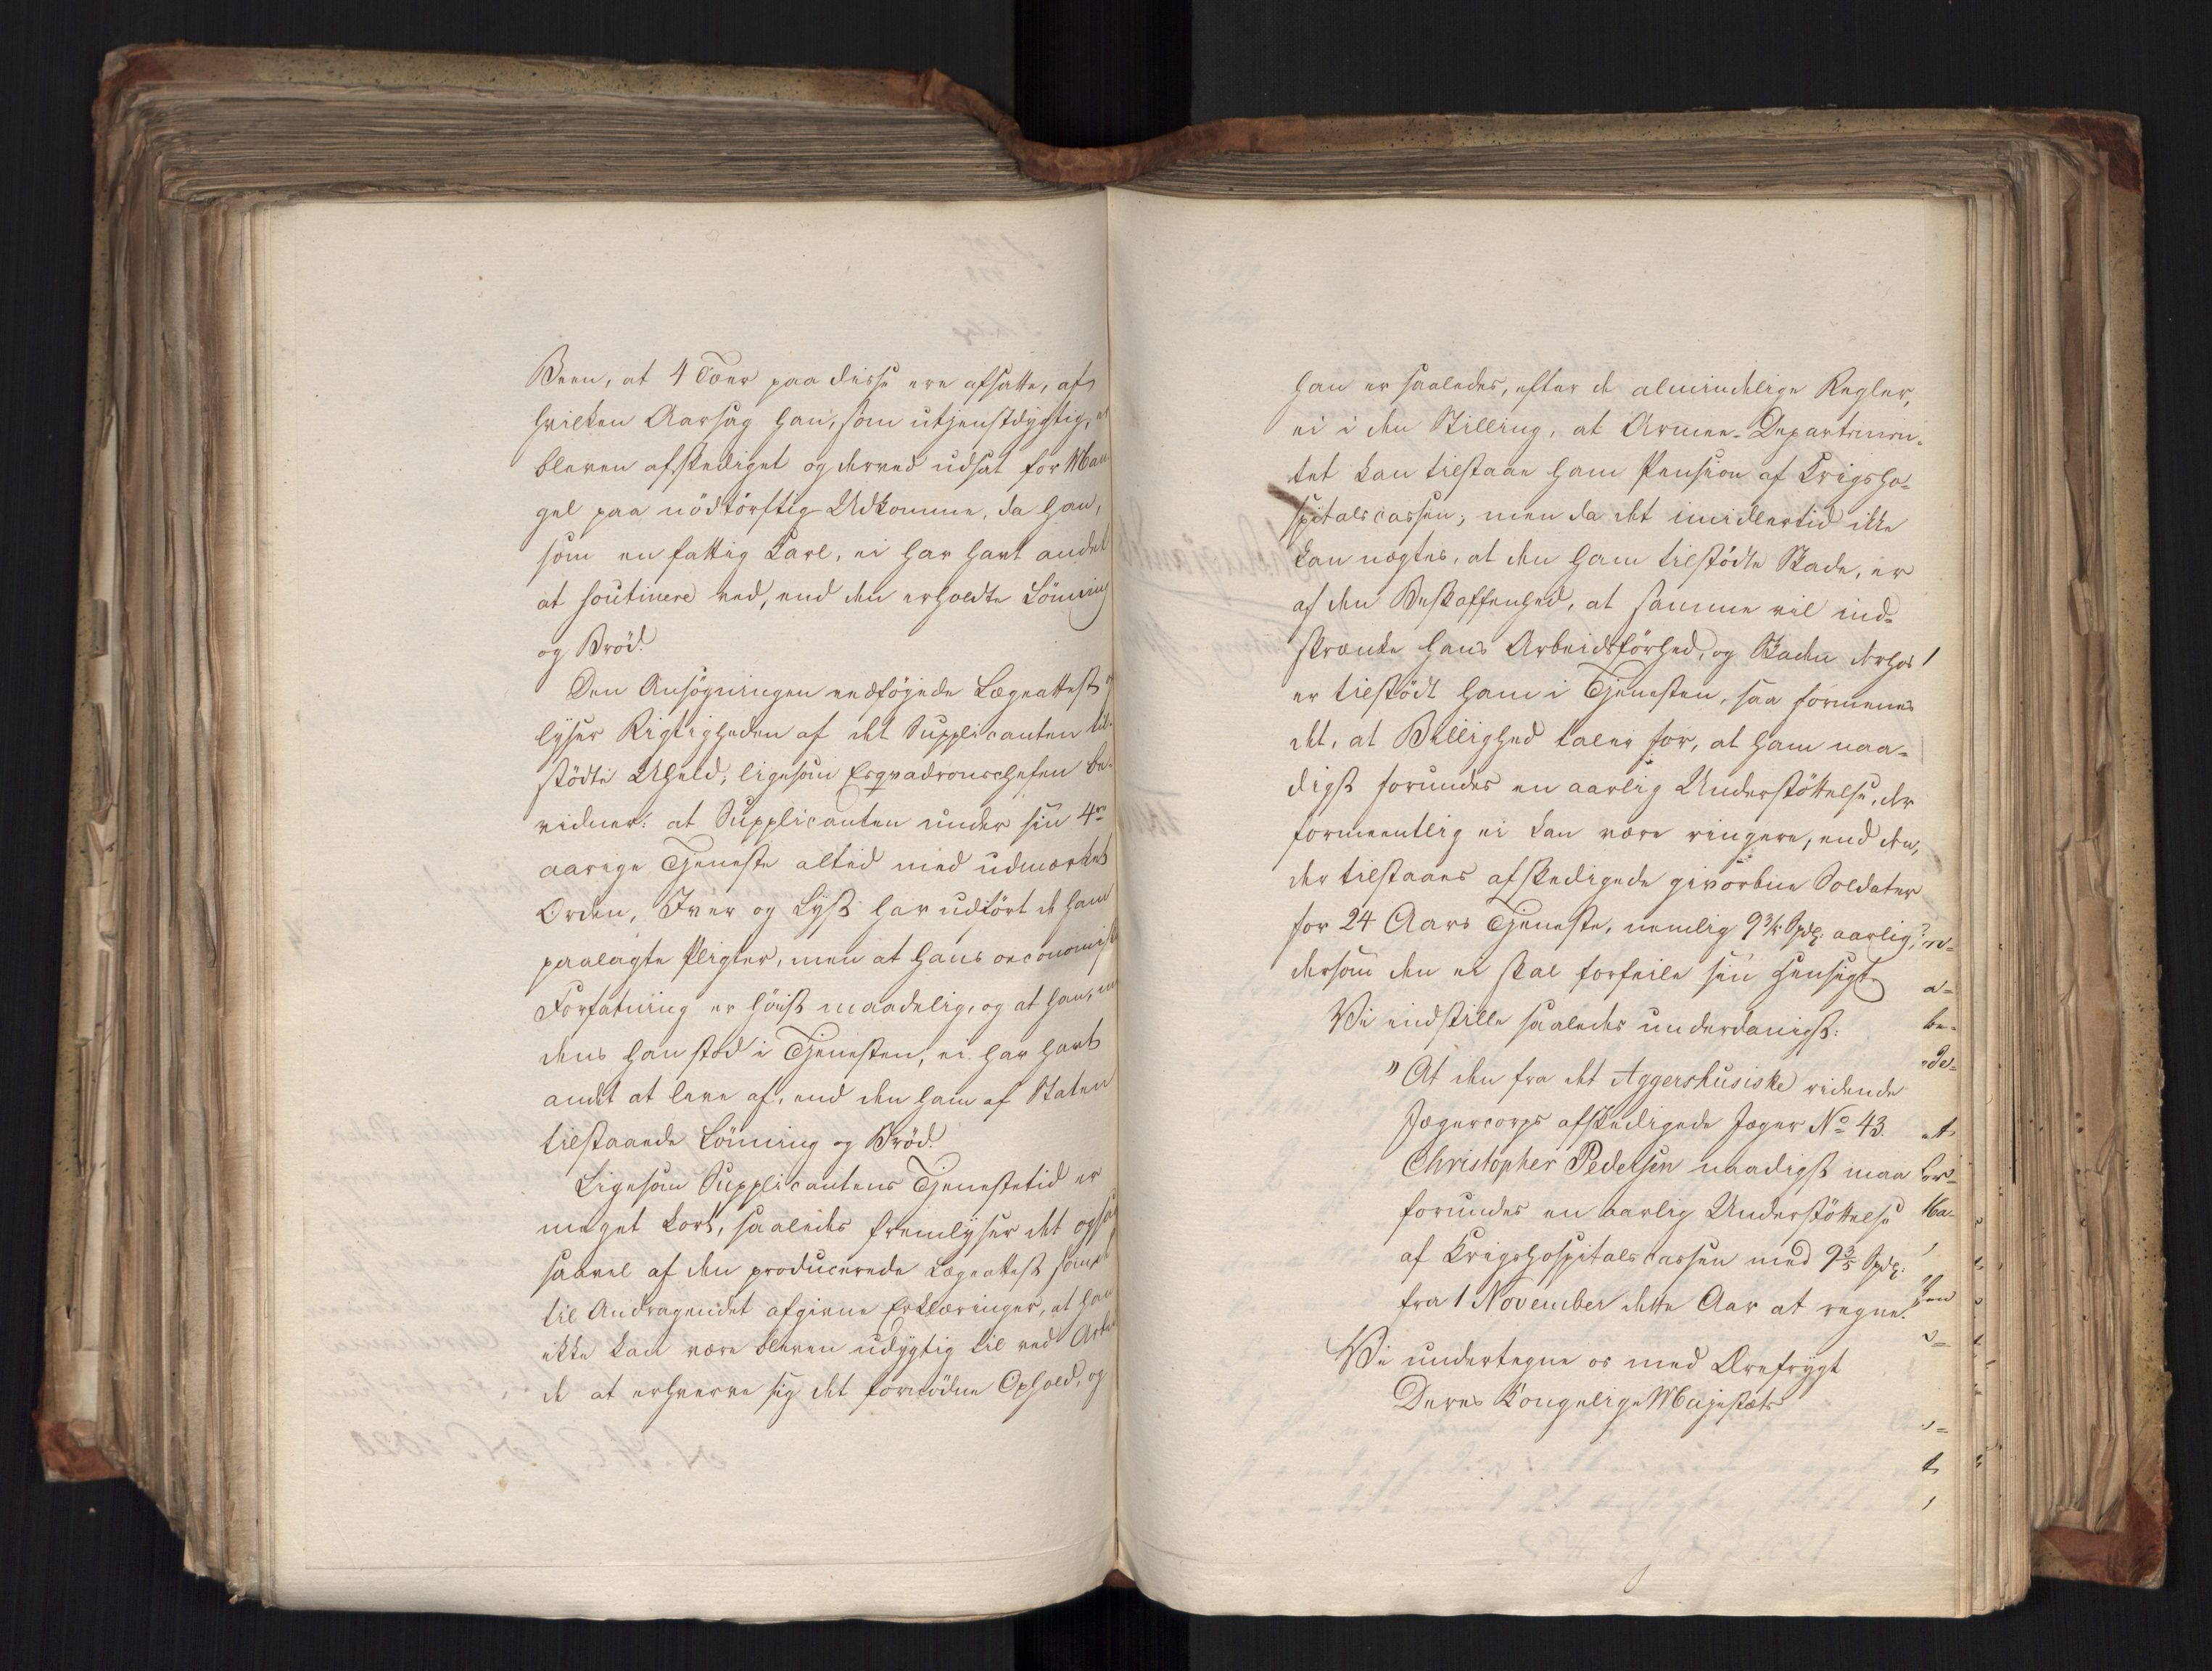 Been, at 4 Tæer paa disse ere afsatte, af
hvilken Aarsag han, som utjenstdygtig, er
bleven afskediget og derved udsat for Man-
gel paa nödtörftig Udkomme, da han,
som en fattig Karl, ei har havt andet
at soutinere ved, end den erholdte Lönning
og Bröd.
Den Ansögningen vedföjede Lægeattest op-
lyser Rigtigheden af det Supplicanten til-
stödte Uheld, ligesom Esqvadronschefen be-
vidner: at Supplicanten under sin 4re
aarige Tjeneste altid med udmærket
Orden, Iver og Lyst har udfört de ham
paalagte Pligter, men at hans oeconomiske
Forfatning er höist maadelig, og at han, me-
dens han stod i Tjenesten, ei har havt
andet at leve af, end den ham af Staten
tilstaaede Lönning og Bröd.
Ligesom Supplicantens Tjenestetid er
meget kort, saaledes fremlyser det ogsaa
saavel af den producerede Lægeattest som de
til Andragendet afgivne Erklæringer, at han
ikke kan være bleven udygtig til ved Arbei-
de at erhverve sig det fornödne Ophold, og
han er saaledes, efter de almindelige Regler,
ei i den Stilling, at Armee-Departemen-
tet kan tilstaae ham Pension af Krigsho-
spitalscassen; men da det imidlertid ikke
kan nægtes, at den ham tilstödte Skade, er
af den Beskaffenhed, at samme vil ind-
skrænke hans Arbeidsförhed, og Skaden derhos
er tilstödt ham i Tjenesten, saa formenes
det, at Billighed taler for, at ham naa-
digst forundes en aarlig Understöttelse, der
formeentlig ei kan være ringere, end den,
der tilstaaes afskedigede givorbne Soldater
for 24 Aars Tjeneste, nemlig 9 3/5 Spdlr: aarlig,
dersom den ei skal forfeile sin Hensigt.
Vi indstille saaledes underdanigst:
"At den fra det Aggershusiske ridende
Jægercorps afskedigede Jæger No 43.
Christopher Pedersen naadigst maa
forundes en aarlig Understöttelse
af Krigshospitalscassen med 9 3/5 Spdlr:
fra 1 November dette Aar at regne."
Vi undertegne os med Ærefrygt
Deres Kongelige Majestæts